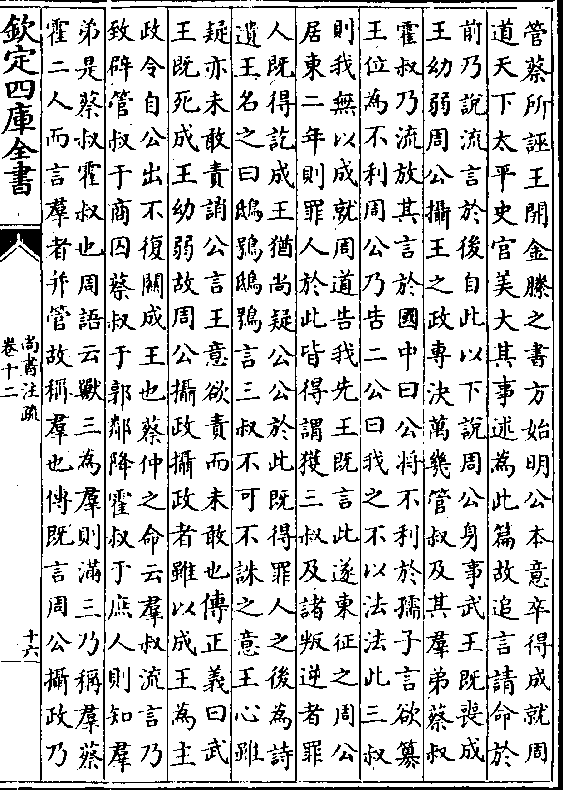 管蔡所誣王開金縢之書方始明公本意卒得成就周
道天下太平史官美大其事述為此篇故追言請命於
前乃說流言於後自此以下說周公身事武王既喪成
王幼弱周公攝王之政專決萬幾管叔及其羣弟蔡叔
霍叔乃流放其言於國中曰公將不利於孺子言欲簒
王位為不利周公乃告二公曰我之不以法法此三叔
則我無以成就周道告我先王既言此遂東征之周公
居東二年則罪人於此皆得謂獲三叔及諸叛逆者罪
人既得訖成王猶尚疑公公於此既得罪人之後為詩
遺王名之曰鴟鴞鴟鴞言三叔不可不誅之意王心雖
疑亦未敢責誚公言王意欲責而未敢也傳正義曰武
王既死成王幼弱故周公攝政攝政者雖以成王為主
政令自公出不復關成王也蔡仲之命云羣叔流言乃
致辟管叔于商囚蔡叔于郭鄰降霍叔于庶人則知羣
弟是蔡叔霍叔也周語云獸三為羣則滿三乃稱羣蔡
霍二人而言羣者并管故稱羣也傳既言周公攝政乃
欽定四庫全書
尚書注疏
卷十二
十六